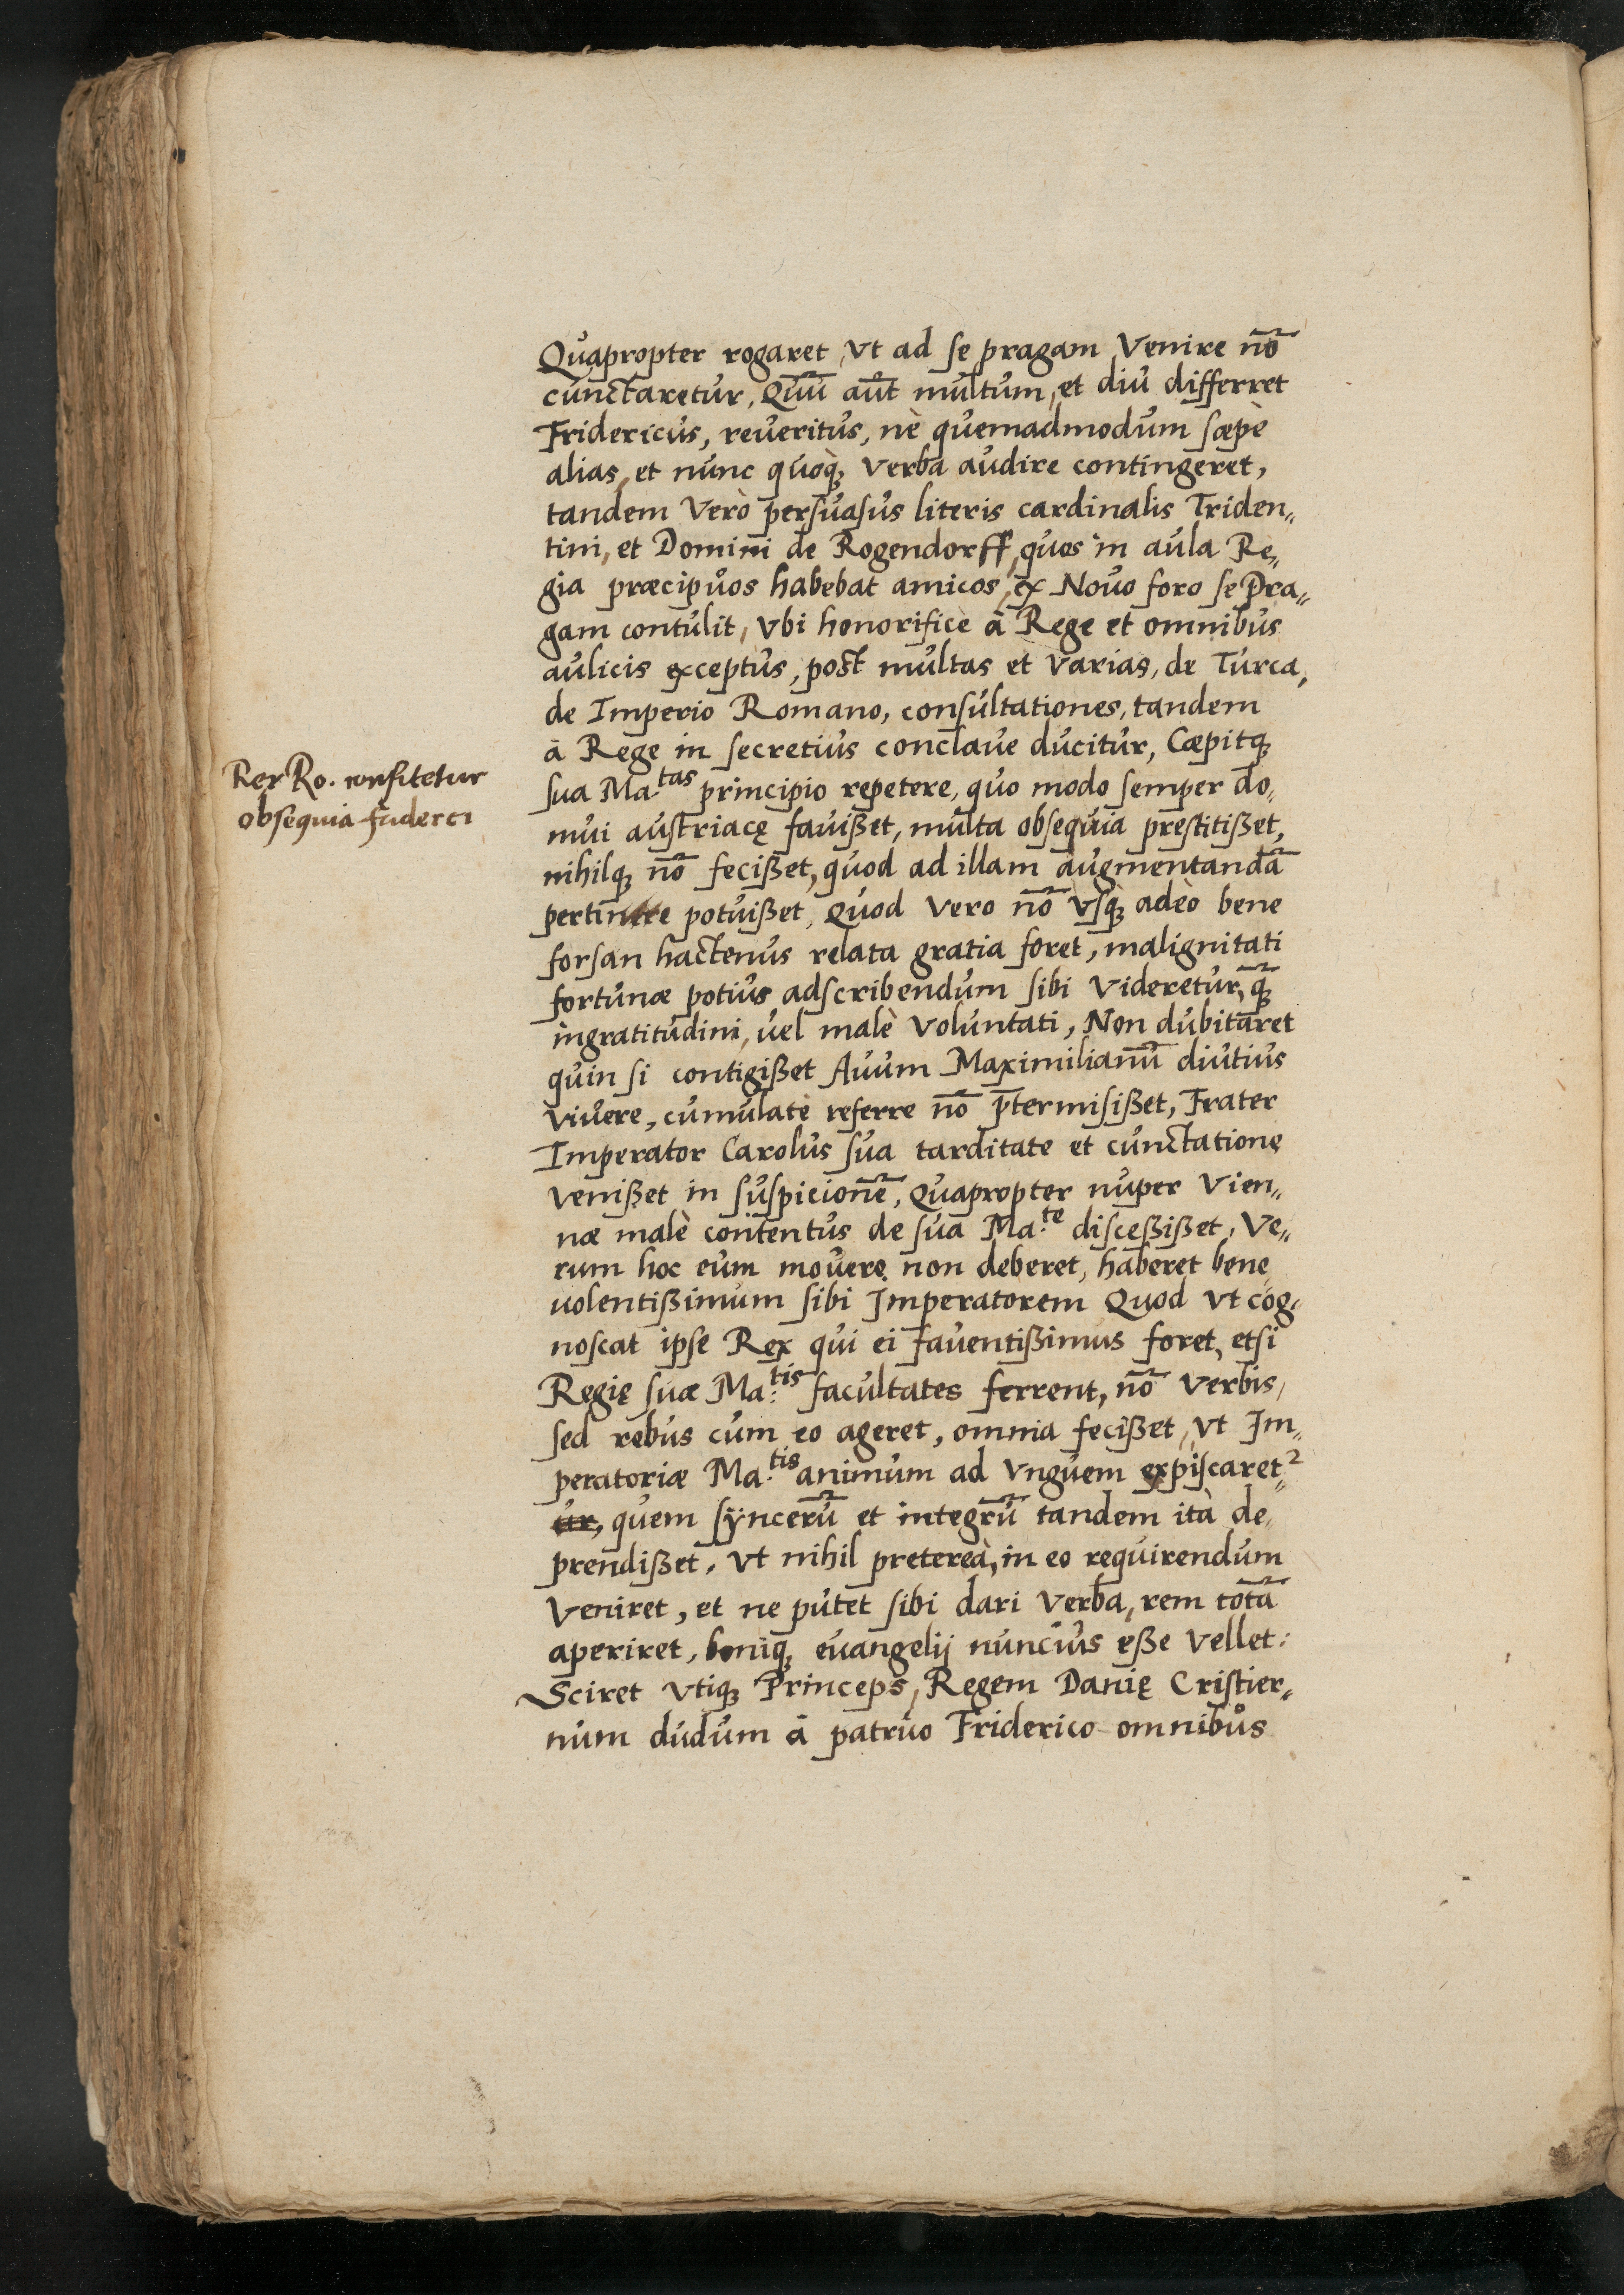 Quapropter rogaret, vt ad se pragam Venire nō
cunctaretur, Quū aūt multum, et diu differret
Fridericus, reueritus, nè quemadmodum sæpè
alias, et nunc quoq, verba audire contingeret,
tandem Verò persuasus literis cardinalis Triden„
tini, et Domini de Rogendorff, quos in aula Re„
gia præcipuos habebat amicos, ex Nouo foro se Pra„
gam contulit, Vbi honorificè à Rege et omnibus
aulicis exceptus, post multas et Varias, de Turca,
de Imperio Romano, consultationes, tandem
à Rege in secretius conclaue ducitur, Cæpitq
Rex Ro. confitetur
obsequia friderci
sua Ma.tas principio repetere, quo modo semper do„
mui austriacę fauißet, multa obsequia prestitißet,
nihilq nō fecißet, quod ad illam augmentandā
pertinere potuißet, Quod vero nō vsq adeò bene
forsan hactenus relata gratia foret, malignitati
fortunæ potius adscribendum sibi Videretur, q̄
ingratitudini, vel malè Voluntati, Non dubitaret
quin si contigißet Auum Maximilianū diutius
viuere, cumulatè referre nō p̄termisißet, Frater
Imperator Carolus sua tarditate et cunctatione
venißet in suspicionē, Quapropter nuper Vien„
næ malè contentus de sua Ma.te disceßißet, Ve„
rum hoc eum mouere non deberet, haberet bene„
uolentißimum sibi Imperatorem Quod vt cog„
noscat ipse Rex qui ei fauentißimus foret, etsi
Regię suæ Ma.tis facultates ferrent, nō Verbis,
sed rebus cum eo ageret, omnia fecißet, vt Im„
peratoriæ Ma.tis animum ad Vnguem expiscaret²„
ur, quem sÿncerū et integrū tandem ità de„
prendißet, vt nihil prætereà, in eo requirendum
Veniret, et ne putet sibi dari Verba, rem totā
aperiret, boniq, euangelij nuncius eße Vellet:
Sciret vtiq Princeps, Regem Danię Cristier„
num dudum à patruo Friderico omnibus